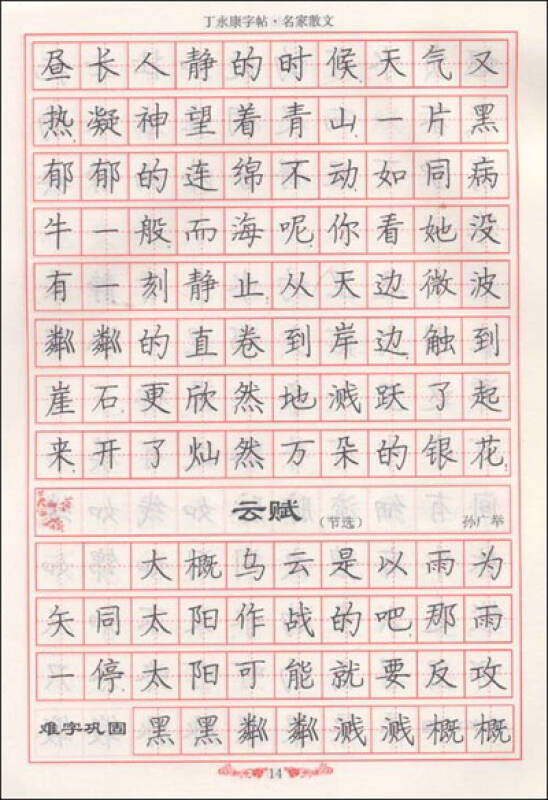 丁永康字帖·名家散文
昼长人静的时候天气又
热凝神望着青山一片黑
郁郁的连绵不动如同病
牛一般而海呢你看她没
有一刻静止从天边微波
粼粼的直卷到岸边触到
崖石更欣然地溅跃了起
来开了灿然万朵的银花
云赋
(节选)
孙广举
大概乌云是以雨为
矢同太阳作战的吧那雨
一停太阳可能就要反攻
难字巩固 黑黑粼粼溅溅概概
14